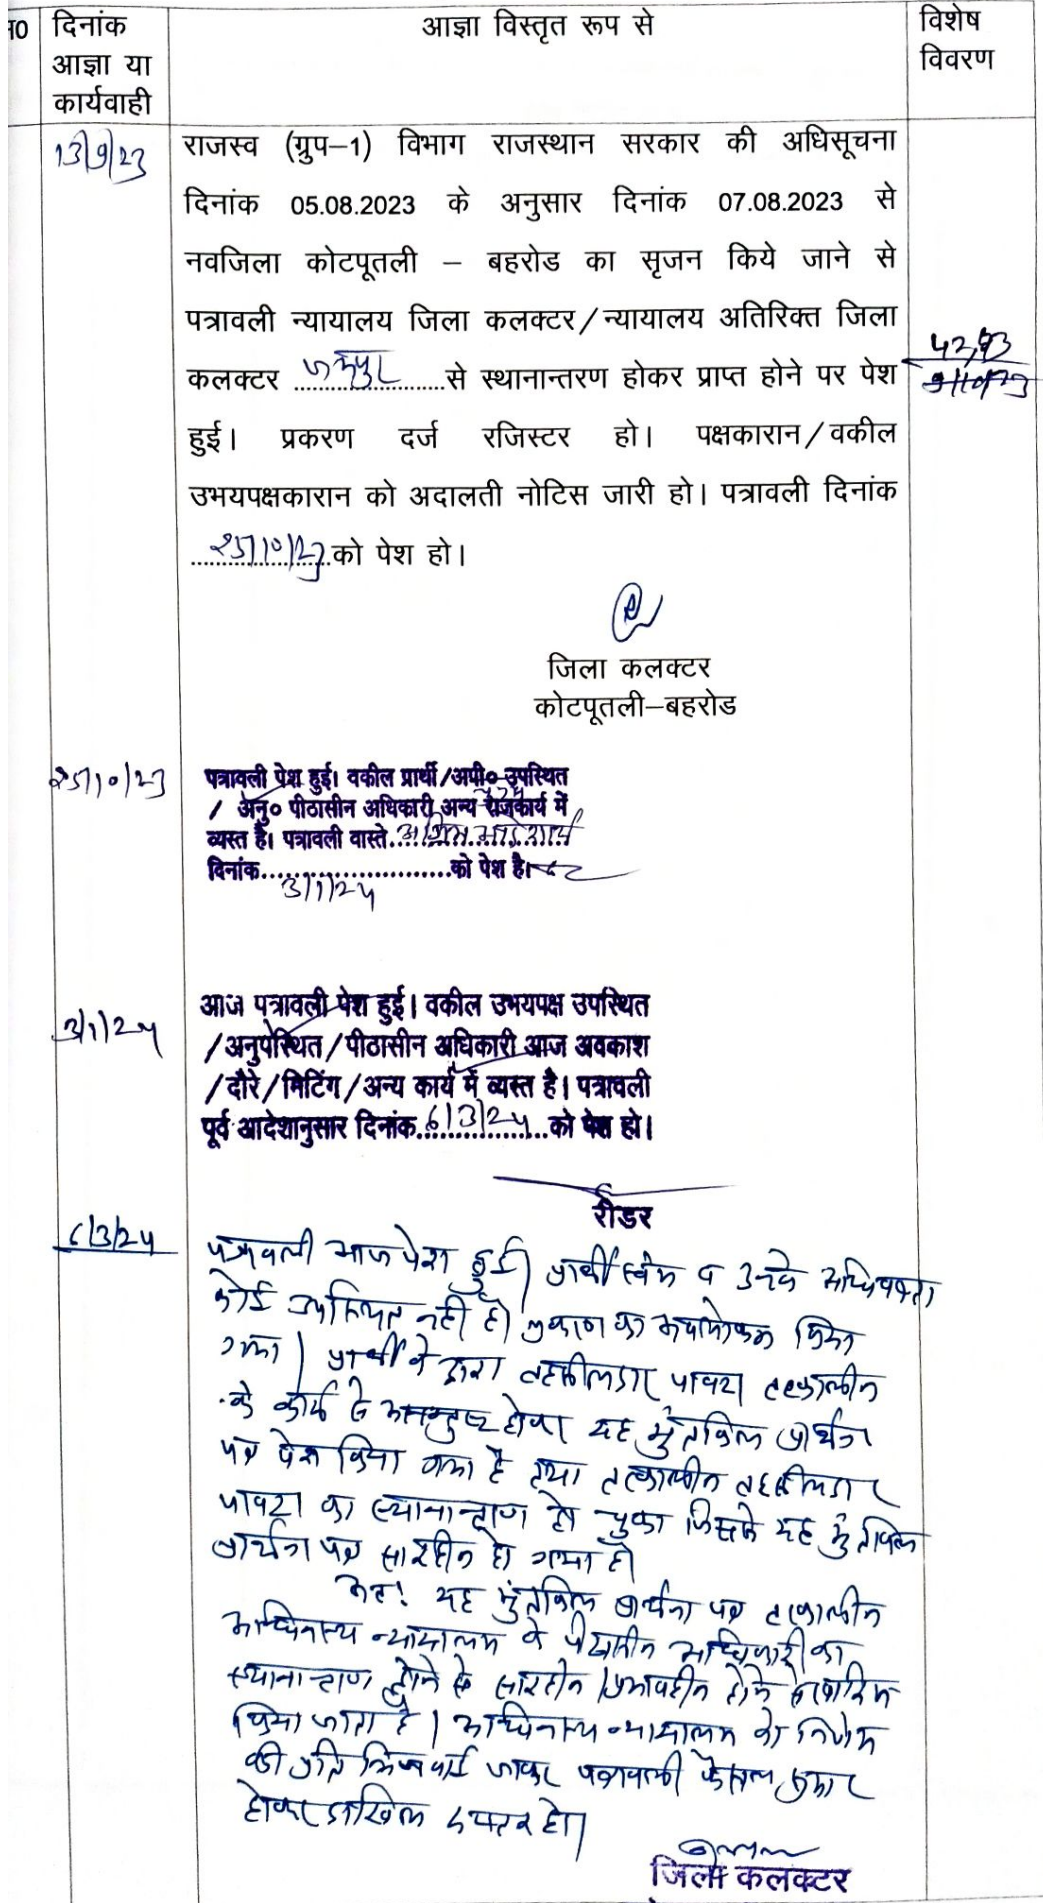 दिनांक
आज्ञा या
कार्यवाही
आज्ञा विस्तृत रूप से
विशेष
विवरण
13/9/23
राजस्व (ग्रुप–1) विभाग राजस्थान सरकार की अधिसूचना
दिनांक 05.08.2023 के अनुसार दिनांक 07.08.2023 से
नवजिला कोटपूतली – बहरोड का सृजन किये जाने से
पत्रावली न्यायालय जिला कलक्टर/न्यायालय अतिरिक्त जिला
कलक्टर जयपुर से स्थानान्तरण होकर प्राप्त होने पर पेश
हुई। प्रकरण दर्ज रजिस्टर हो। पक्षकारान/वकील
उभयपक्षकारान को अदालती नोटिस जारी हो। पत्रावली दिनांक
25/10/23 को पेश हो।
जिला कलक्टर
कोटपूतली–बहरोड
25/10/23
पत्रावली पेश हुई। वकील प्रार्थी/अपी० उपस्थित
/ अनु० पीठासीन अधिकारी अन्य राजकार्य में
व्यस्त है। पत्रावली वास्ते
दिनांक........................को पेश है।
3/1/24
3/1/24
आज पत्रावली पेश हुई। वकील उभयपक्ष उपस्थित
/अनुपस्थित/पीठासीन अधिकारी आज अवकाश
/दौरे/मिटिंग/अन्य कार्य में व्यस्त है। पत्रावली
पूर्व आदेशानुसार दिनांक 6/3/24 को पेश हो।
रीडर
6/3/24
पत्रावली आज पेश हुई। प्रार्थी स्वंय व उनके अधिवक्ता
कोई उपस्थित नहीं है। प्रकरण का अवलोकन किया
गया। प्रार्थी के द्वारा तहसीलदार पावटा तत्कालीन
के कार्य से असन्तुष्ट होकर यह मुंतकिल प्रार्थना
पत्र पेश किया गया है तथा तत्कालीन तहसीलदार
पावटा का स्थानान्तरण हो चुका जिससे यह मुंतकिल
प्रार्थना पत्र सारहीन हो गया है।
अतः यह मुंतकिल प्रार्थना पत्र तत्कालीन
अधिनस्थ न्यायालय के पीठासीन अधिकारी का
स्थानान्तरण होने से सारहीन/प्रभावहीन होने से खारिज
किया जाता है। अधिनस्थ न्यायालय को निर्णय
की प्रति भिजवाई जाकर पत्रावली फैसल शुमार
होकर दाखिल दफ्तर हो।
जिला कलक्टर